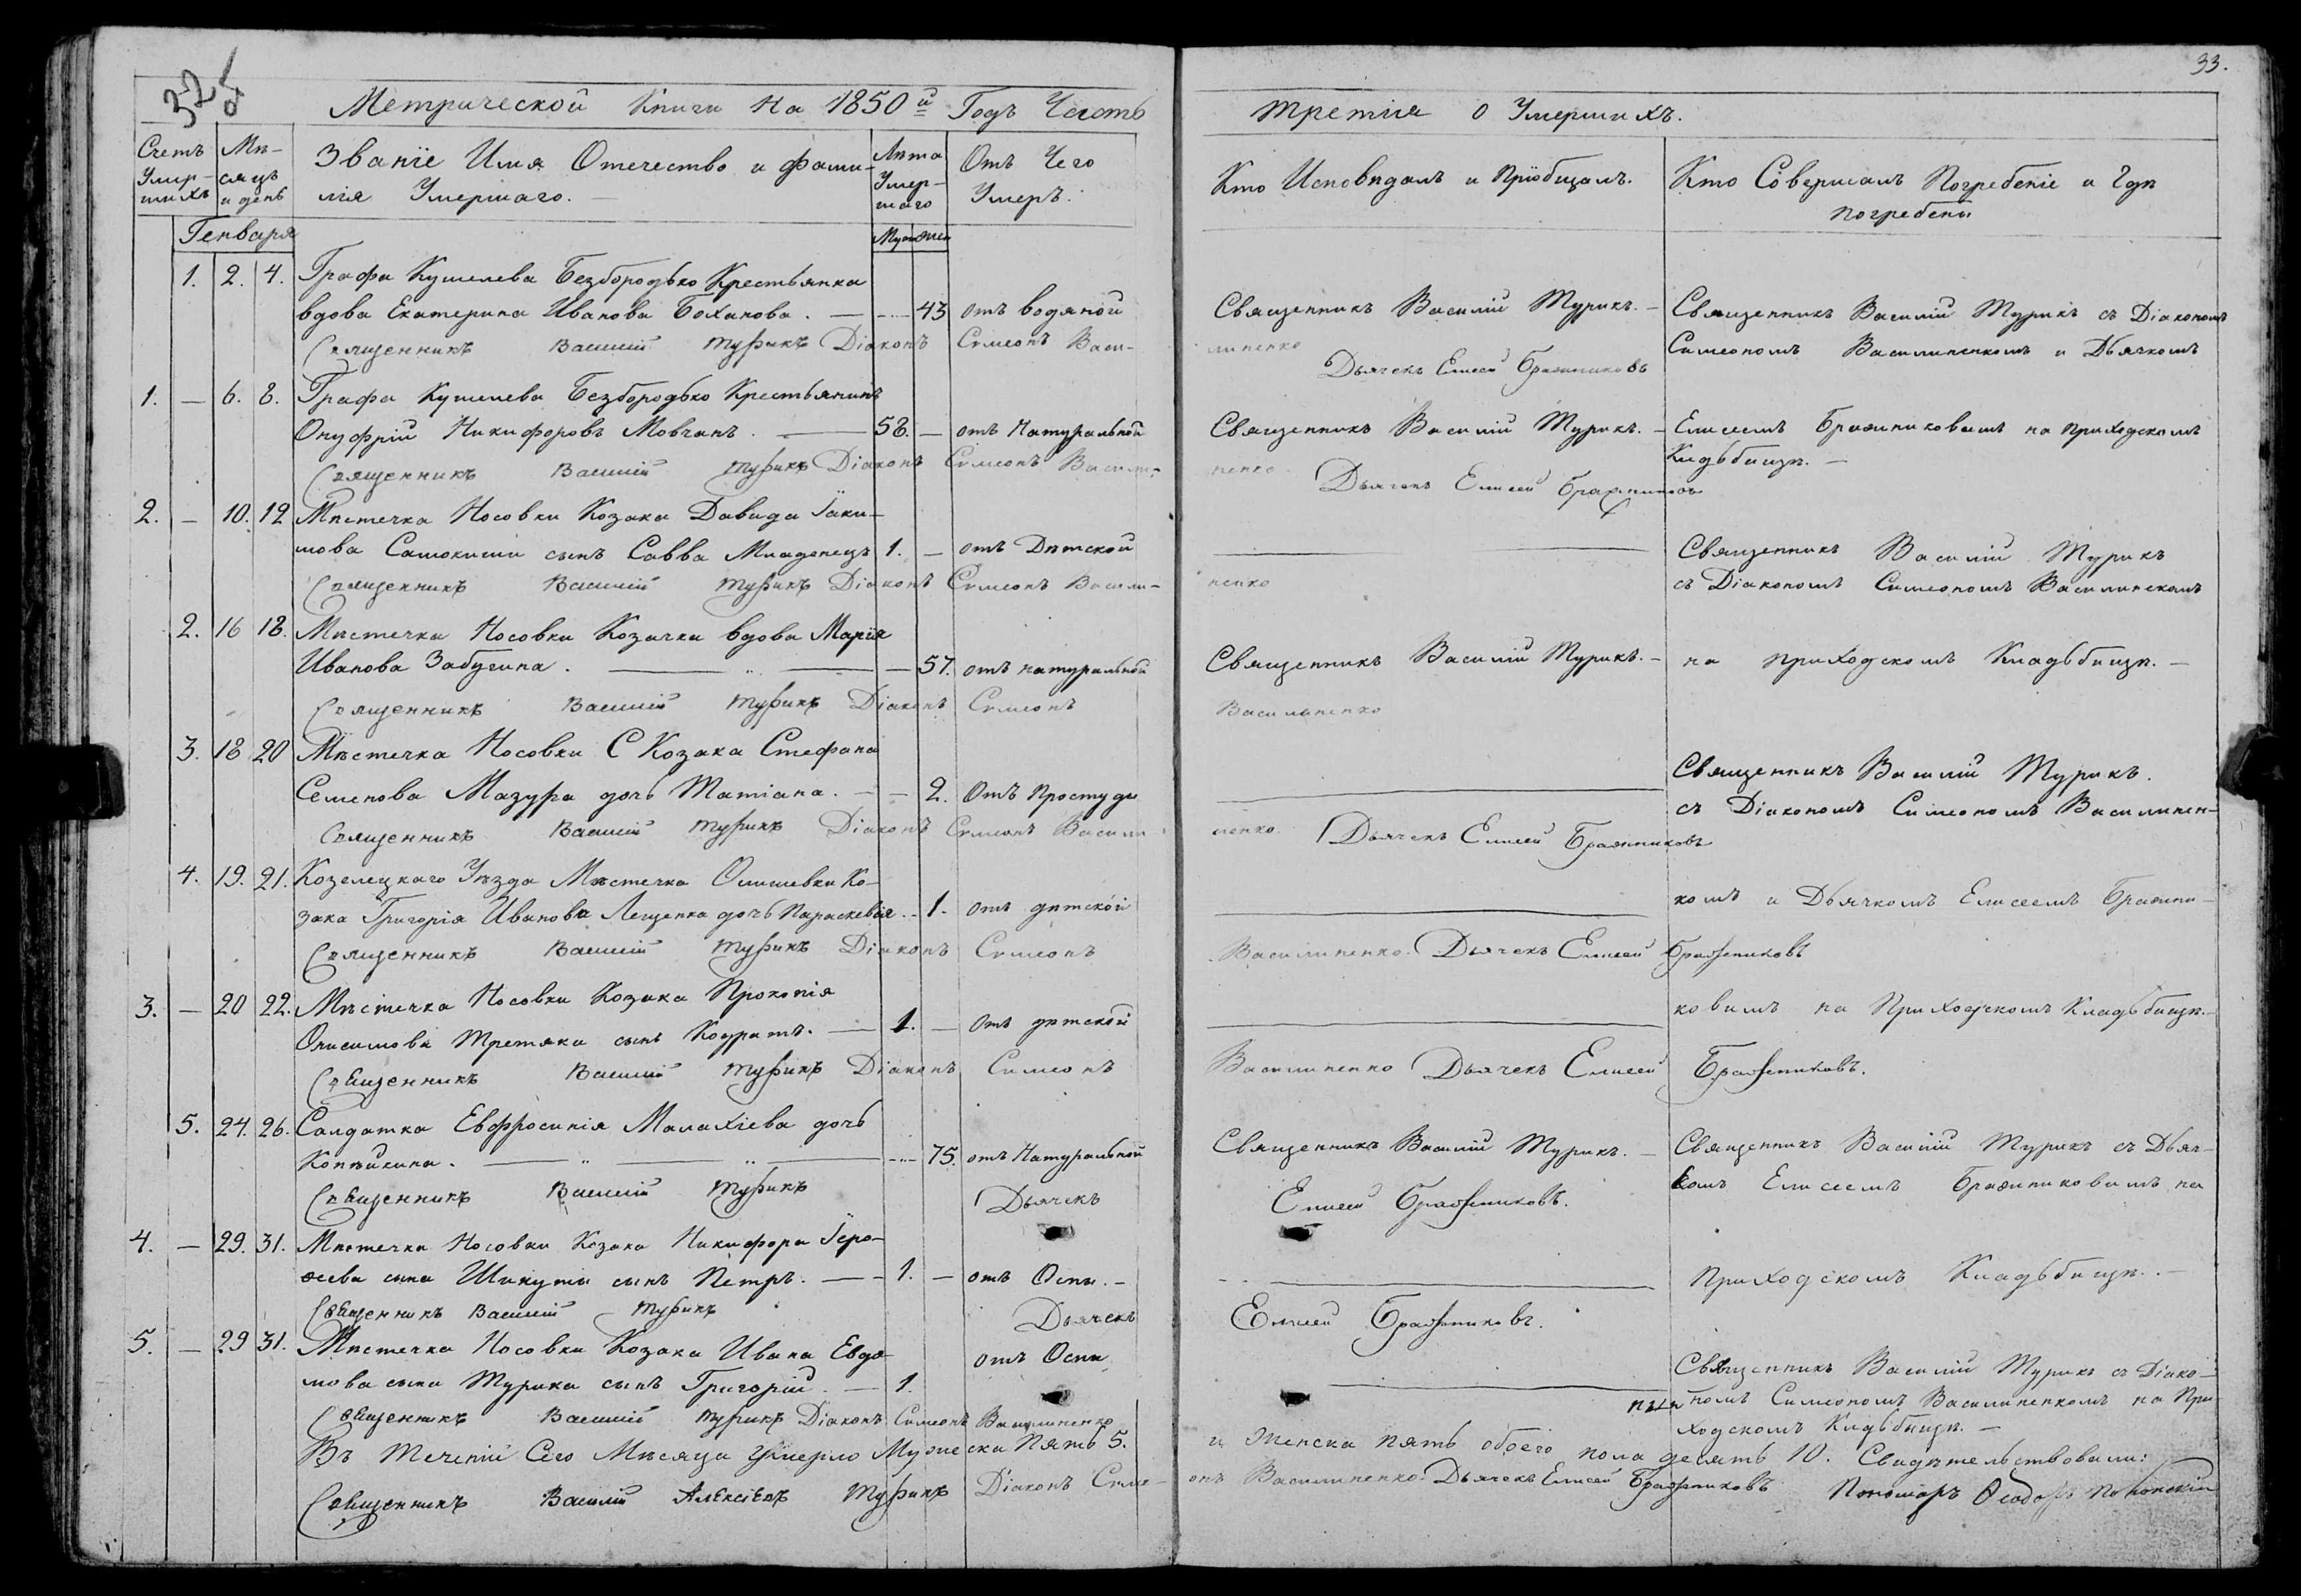 32 об
33.
Метрической Книги На 1850й Годъ Часть
третія о Умершихъ.
Счетъ Умер-шихъ
Мѣ-сяцъ и день
Званіе Имя Отечество и фами-
лія Умершаго.
Лѣта Умер-шаго
Отъ Чего Умеръ.
Кто Исповѣдалъ и Пріобщалъ.
Кто Совершалъ Погребеніе и Гдѣ
погребены
Генваря
Муж жен
1. 2. 4. Графа Кушелева Безбородько Крестьянка
вдова Екатерина Иванова Боханова. — 43 отъ водяной
Священникъ Василій Турикъ Діаконъ Симеонъ Васи-
линенко
Дьячекъ Елисей Бражниковъ
Священникъ Василій Турикъ. —
Священникъ Василій Турикъ съ Діакономъ
Симеономъ Василиненкомъ и Дьячкомъ
1. — 6. 8. Графа Кушелева Безбородько Крестьянинъ
Онуфрій Никифоровъ Мовчанъ. — 58. — отъ Натуральной
Священникъ Василій Турикъ Діаконъ Симеонъ Васили-
ненко
Дьячекъ Елисей Бражниковъ
Священникъ Василій Турикъ. —
Елисеемъ Бражниковымъ на приходскомъ
Кладьбищѣ. —
2. — 10. 12 Мѣстечка Носовки Козака Давида Іаки-
мова Самокиши сынъ Савва Младенецъ 1. — отъ Дѣтской
Священникъ Василій Турикъ Діаконъ Симеонъ Васили-
ненко
Священникъ Василій Турикъ
съ Діакономъ Симеономъ Василиненкомъ
2. 16 18. Мѣстечка Носовки Козачка вдова Марія
Иванова Забугина. — 57. отъ натуральной
Священникъ Василій Турикъ Діаконъ Симеонъ
Василиненко
Священникъ Василій Турикъ. —
на приходскомъ Кладьбищѣ. —
3. 18 20 Мѣстечка Носовки С Козака Стефана
Семенова Мазура дочь Татіана. — 2. Отъ Простуды
Священникъ Василій Турикъ Діаконъ Симеонъ Васили-
ненко
Дьячекъ Елисей Бражниковъ
Священникъ Василій Турикъ.
съ Діакономъ Симеономъ Василинен-
4. 19. 21. Козелецкаго Уѣзда Мѣстечка Олишевки Ко-
зака Григорія Иванова Лещенка дочь Параскевія. — 1. отъ дѣтской
Священникъ Василій Турикъ Діаконъ Симеонъ
Василиненко. Дьячекъ Елисей Бражниковъ
комъ и Дьячкомъ Елисеемъ Бражни-
3. — 20 22. Мѣстечка Носовки Козака Прокопія
Онисимова Третяка сынъ Кодратъ. — 1. — отъ дѣтской
Священникъ Василій Турикъ Діаконъ Симеонъ
Василиненко Дьячекъ Елисей Бражниковъ.
ковымъ на Приходскомъ Кладьбищѣ. —
5. 24. 26. Салдатка Евфросинія Малахіева дочь
Копѣйкина. — 75. отъ Натуральной
Священникъ Василій Турикъ Дьячекъ
Елисей Бражниковъ.
Священникъ Василій Турикъ. —
Священникъ Василій Турикъ съ Дьяч-
комъ Елисеемъ Бражниковымъ на
4. — 29. 31. Мѣстечка Носовки Козака Никифора Іеро-
ѳеева сына Шикуты сынъ Петръ. — 1. — отъ Оспы. —
Священникъ Василій Турикъ Дьячекъ
Елисей Бражниковъ.
Приходскомъ Кладьбищѣ. —
5. — 29 31. Мѣстечка Носовки Козака Ивана Евдо-
мова сына Турика сынъ Григорій. — 1. отъ Оспы
Священникъ Василій Турикъ Діаконъ Симеонъ Василиненко
Священникъ Василій Турикъ съ Діако-
номъ Симеономъ Василиненкомъ на При-
ходскомъ Кладьбищѣ. —
Въ Теченіи Сего Мѣсяца Умерло Мужеска Пять 5. и Женска пять обоего пола десять 10. Свидѣтельствовали:
Священникъ Василій Алексіевъ Турикъ Діаконъ Симе-онъ Василиненко. Дьячекъ Елисей Бражниковъ Пономаръ Ѳеодоръ